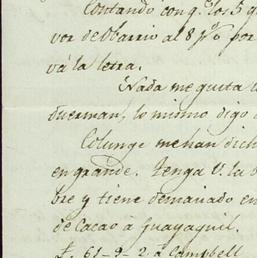 Contando con q.e los 5 q
vor de Obarrio al 8 p.% por
vá la letra.
Nada me quita
duerman, lo mismo digo
Colunge me han dich
en grande. Tenga V. la b
bre y tiene demaciado en
de Cacao à Guayaquil.
£ 61-9-2 à Campbell